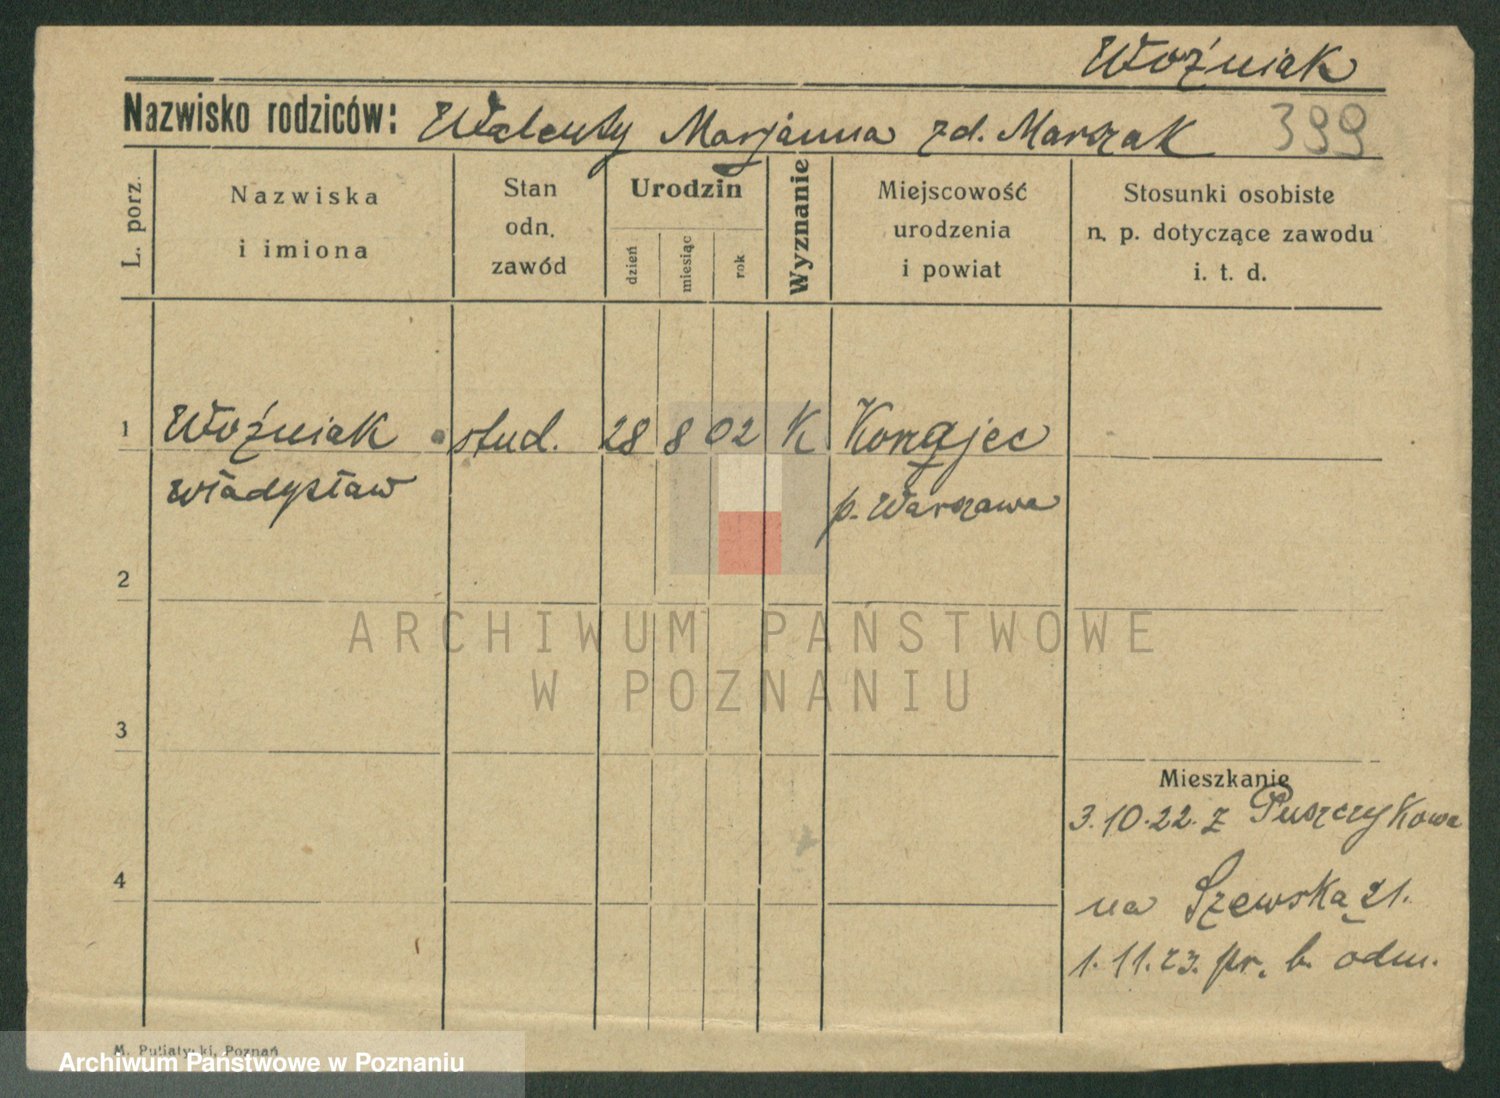 Woźniak
Nazwisko rodziców: Walenty Marjanna zd. Marszak
399
L. porz.
Nazwiska
i imiona
Stan
odn.
zawód
Urodzin
dzień
miesiąc
rok
Wyznanie
Miejscowość
urodzenia
i powiat
Stosunki osobiste
n. p. dotyczące zawodu
i. t. d.
1 Woźniak stud. 28 8 02 K Konajec
Władysław p. Warszawa
2
ARCHIWUM PAŃSTWOWE
W POZNANIU
3
Mieszkanie
3.10.22. z Puszczykowa
4
na Szewską 21.
1.11.23. pr. b. odm.
M. Putiatycki, Poznań
Archiwum Państwowe w Poznaniu